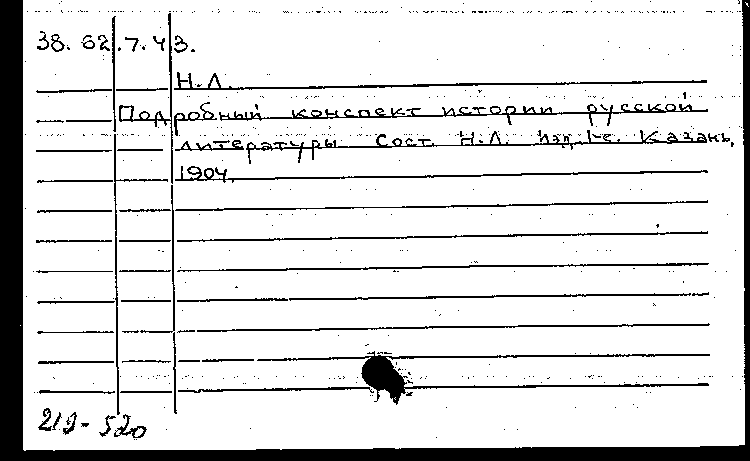 38.62.7.43.
Н.Л.
Подробный конспект истории русской
литературы. Сост. Н.Л. Изд. 1-е. Казань,
1904.
219-520